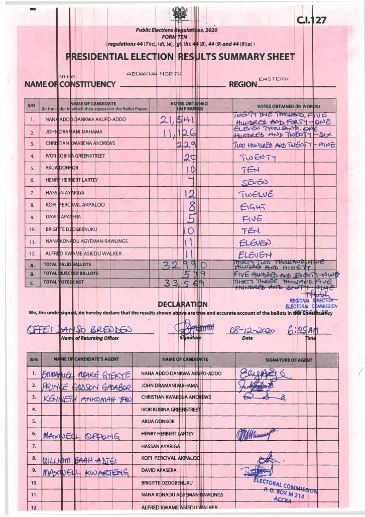 C.I.127
Public Elections Regulations, 2020
FORM TEN
(regulations 44 (7)(c), (d), (e), (g) (h), 44(8), 44 (9) and 44 (9)(a))
PRESIDENTIAL ELECTION RESULTS SUMMARY SHEET
NAME OF CONSTITUENCY ABUAKWA NORTH REGION EASTERN
S/N NAME OF CANDIDATE VOTES OBTAINED VOTES OBTAINED (IN WORDS)
(In the order in which they appear on the Ballot Paper) (IN FIGURES)
1. NANA ADDO DANKWA AKUFO-ADDO 21,541 TWENTY ONE THOUSAND, FIVE HUNDRED AND FORTY-ONE
2. JOHN DRAMANI MAHAMA 11,126 ELEVEN THOUSAND, ONE HUNDRED AND TWENTY-SIX
3. CHRISTIAN KWABENA ANDREWS 229 TWO HUNDRED AND TWENTY-NINE
4. IVOR KOBINA GREENSTREET 20 TWENTY
5. AKUA DONKOR 10 TEN
6. HENRY HERBERT LARTEY 7 SEVEN
7. HASSAN AYARIGA 12 TWELVE
8. KOFI PERCIVAL AKPALOO 8 EIGHT
9. DAVID APASERA 5 FIVE
10. BRIGITTE DZOGBENUKU 10 TEN
11. NANA KONADU AGYEMAN-RAWLINGS 11 ELEVEN
12. ALFRED KWAME ASIEDU WALKER 11 ELEVEN
A. TOTAL VALID BALLOTS 32,990 THIRTY TWO THOUSAND, NINE HUNDRED AND NINETY
B. TOTAL REJECTED BALLOTS 579 FIVE HUNDRED AND SEVENTY-NINE
C. TOTAL VOTES CAST 33,569 THIRTY THREE THOUSAND, FIVE HUNDRED AND SIXTY-NINE
REGIONAL DIRECTOR
ELECTORAL COMMISSION
DECLARATION
We, the undersigned, do hereby declare that the results shown above are true and accurate account of the ballots in this Constituency
OFFEI DANSO BREDDEN 08-12-2020 6:05AM
Name of Returning Officer Signature Date Time
S/N NAME OF CANDIDATE'S AGENT NAME OF CANDIDATE SIGNATURE OF AGENT
1. EMMANUEL ADARE GYEKYE NANA ADDO DANKWA AKUFO-ADDO
2. PRINCE JOHN DRAMANI MAHAMA
3. KENNETH ANKOMAH CHRISTIAN KWABENA ANDREWS
4. IVOR KOBINA GREENSTREET
5. AKUA DONKOR
6. MAXWELL OPPONG HENRY HERBERT LARTEY
7. HASSAN AYARIGA
8. WILLIAM KOFI PERCIVAL AKPALOO
9. MAXWELL KWARTENG DAVID APASERA
10. BRIGITTE DZOGBENUKU
11. NANA KONADU AGYEMAN-RAWLINGS
12. ALFRED KWAME ASIEDU WALKER
ELECTORAL COMMISSION
P. O. BOX M 214
ACCRA